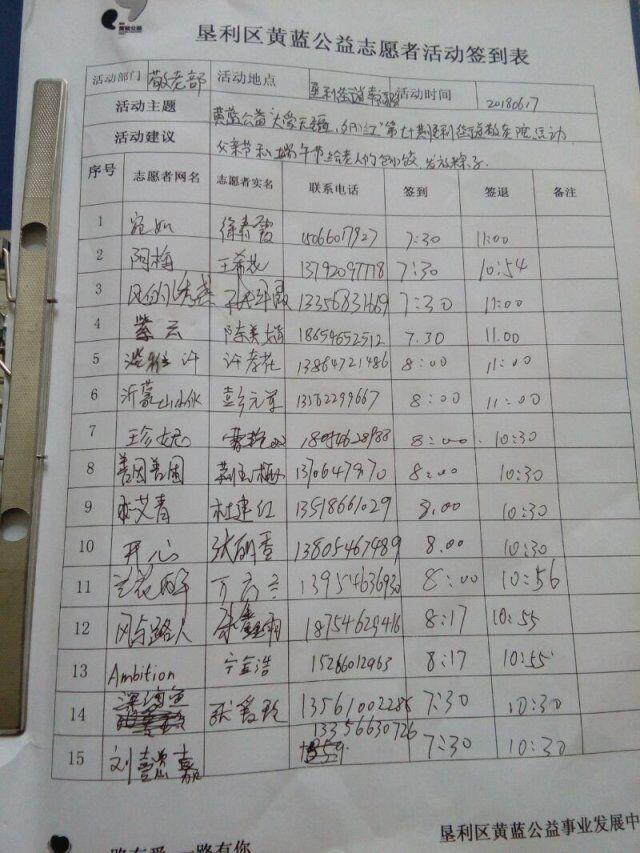 黄蓝公益
垦利区黄蓝公益志愿者活动签到表
活动部门 敬老部 活动地点 垦利街道 活动时间 20180617
活动主题 黄蓝公益"大爱无疆,夕阳红"第 期垦利街道敬老院活动
活动建议 父亲节和端午节给老人们包水饺,发放粽子.
序号 志愿者网名 志愿者实名 联系电话 签到 签退 备注
1 宛如 徐春霞 15066017927 7:30 11:00
2 阿梅 王希花 13792097778 7:30 10:54
3 13356831669 7:30 11:00
4 紫云 陈美娟 18654652512 7.30 11.00
5 许孝花 13864721486 8:00 11:00
6 沂蒙山小伙 彭元军 13562299667 8:00 11:00
7 18054628988 8:00 10:30
8 善因善困 8:00 10:30
9 艾青 杜建红 13518661029 8.00 10:30
10 开心 张丽香 13805467489 8.00 10:30
11 13954636930 8:00 10:56
12 风与路人 18754629416 8:17 10:55
13 Ambition 宁金浩 15266012963 8:17 10:55
14 深海鱼 张爱玲 13561002286 7:30 10:30
15 刘 嘉 13356630726 7:30 10:30
垦利区黄蓝公益事业发展中
一路有爱 一路有你